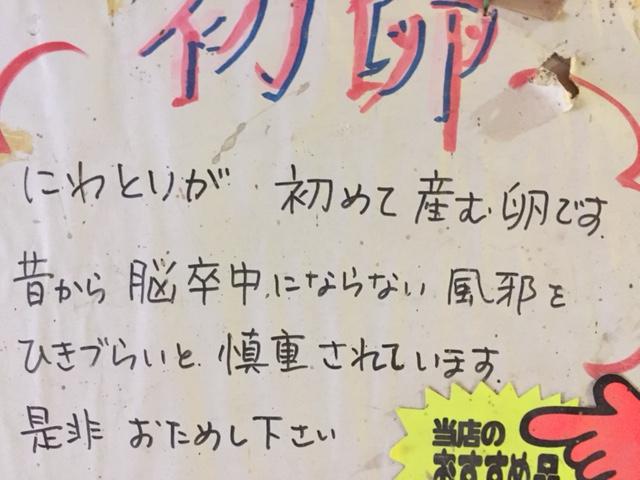 初卵
にわとりが 初めて産む卵です
昔から脳卒中にならない 風邪を
ひきづらいと 慎重されています
是非 おためし下さい
当店の
おすすめ品